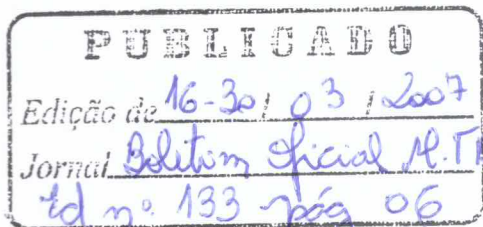 PUBLICADO
Edição de 16-30/03/2007
Jornal Boletim Oficial M.
Ed nº 133 pág 06